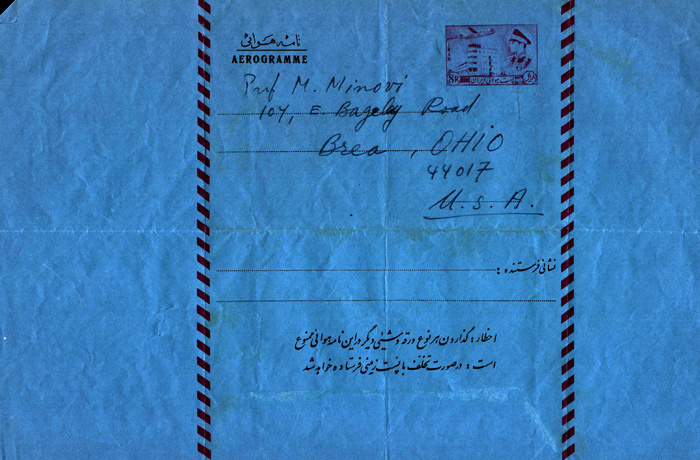 نامه هوائی
AEROGRAMME
8R
پست هوائی ایران
Prof M. Minovi
104, E. Bagely Road
Brea, OHIO
44017
U.S.A.
نشانی فرستنده :
اخطار : گذاردن هر نوع ورقه و شیئی دیگر در این نامه هوائی ممنوع
است : در صورت تخلف با پست زمینی فرستاده خواهد شد